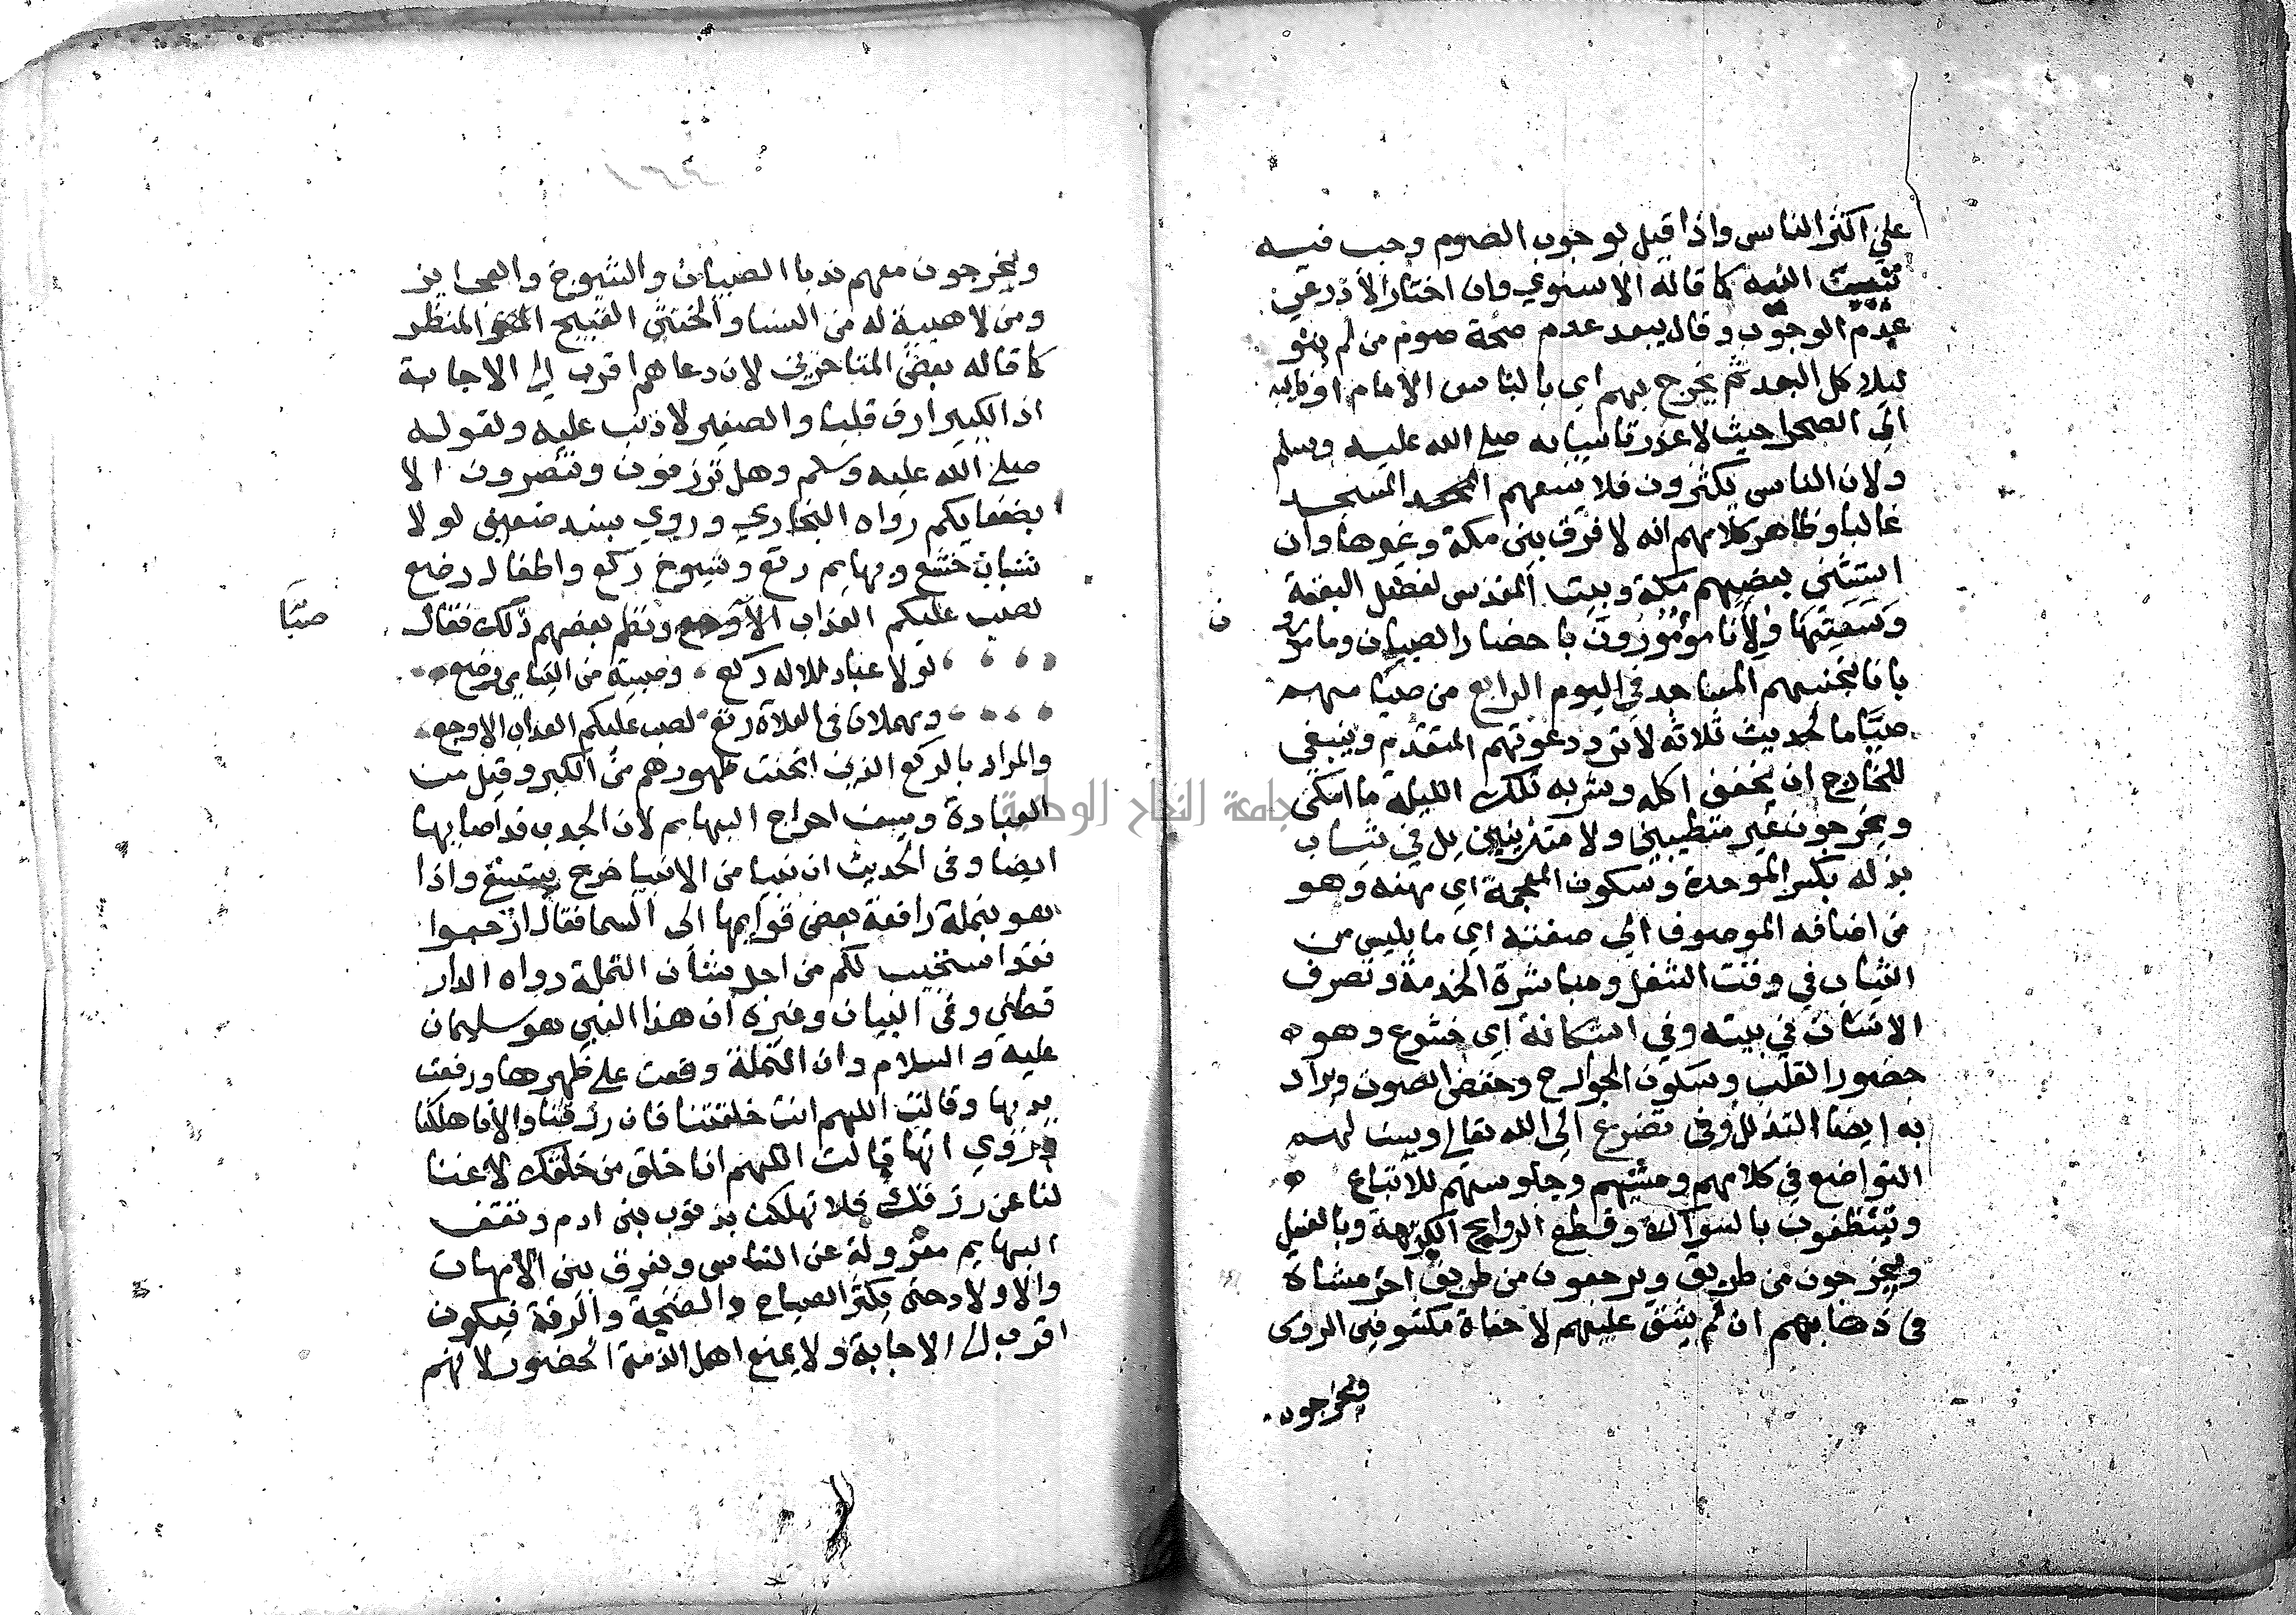 علي اكثر الناس واذا قيل بوجوب الصوم وجب فيه
تبييت النيه كما قاله الاسنوي وان اختار الأذرعي
عدم الوجوب وقال يبعد عدم صحة صوم من لم ينو
ليلا كل البعد ثم يخرج بهم اي بالناس الامام او نايبه
الى الصحرا حيث لا عذر تاسيا به صلي الله عليه وسلم
ولان الناس يكثرون فلا يسعهم المسجد
غالبا وظاهر كلامهم انه لا فرق بين مكة وغيرها وان
استثنى بعضهم مكة وبيت المقدس لفضل البقعة
وسعتها ولأنا مؤمورون باحضار الصبيان ومامرو
ن
بانا نجنبهم المساجد في اليوم الرابع من صيا مهم
صيَّاما لحديث ثلاثة لا ترد دعوتهم المتقدم وينبغي
للخارج ان يخفف اكله وشربه تلك الليلة ما امكن
ويخرجون غير متطيبين ولا متزينين بل في ثياب
بذله بكسر الموحدة وسكون المعجمة اي مهنه وهو
من اضافه الموصوف الي صفته اي ما يلبس من
الثياب في وقت الشغل ومباشرة الخدمة وتصرف
الانسان في بيته وفي استكانة اي خشوع وهو ه
حضور القلب وسكون الجوارح وخفض الصوت ويراد
به ايضا التذلل وفي تضرع الى الله تعالي ويسن لهم
التواضع في كلامهم ومشيهم وجلوسهم للاتباع ه
ويتنظفون بالسواك وقطع الروايح الكريهة وبالغسل
ويخرجون من طريق ويرجعون من طريق اخر مشاة
في ذهابهم ان لم يشق عليهم لا حفاة مكشوفين الروس
ويخرجون
ويخرجون معهم ندبا الصبيان والشيوخ والعجايز
ومن لا هيبة له من النسا والخنثى القبيح المنظر
كما قاله بعض المتاخرين لان دعاهم اقرب الي الاجابة
اذ الكبير ارق قلبا والصغير لا ذنب عليه ولقوله
صلي الله عليه وسلم وهل ترزقون وتنصرون الا
بضعفايكم رواه البخاري وروي بسند ضعيف لولا
شباب خشع وبهايم رتع وشيوخ ركع واطفال رضع
لصب عليكم العذاب الأوجع ونظم بعضهم ذلك فقال
صبًّا
لولا عباد للاله ركع وصبية من اليتامي رضع
ومهملات في الفلاة رتع لصب عليكم العذاب الاوجع
والمراد بالركع الذين انحنت ظهورهم من الكبر وقيل من
العبادة ويسن اخراج البهايم لان الجدب قد اصابها
ايضا وفي الحديث ان نبيا من الانبيا خرج يستسقى واذا
هو بنملة رافعة بعض قوايمها الى السما فقال ارجعوا
فقد استجيب لكم من اجل شأن النملة رواه الدار
قطني وفى البيان وغيره أن هذا النبي هو سليمان
عليه و السلام وان النملة وقعت علي ظهرها ورفعت
يديها وقالت اللهم انت خلقتنا فان رزقتنا والا فاهلكنا
وروي انها قالت اللهم انا خلق من خلقك لا غنا
لنا عن رزقك فلا تهلكنا بذنوب بنى ادم وتقف
البهايم معزولة عن الناس ويفرق بين الامهات
والاولاد حتى يكثر الصياح والضجة والرقة فيكون
اقرب الي الاجابة ولا يمنع اهل الذمة الحضور لانهم
جامعة النجاح الوطنية